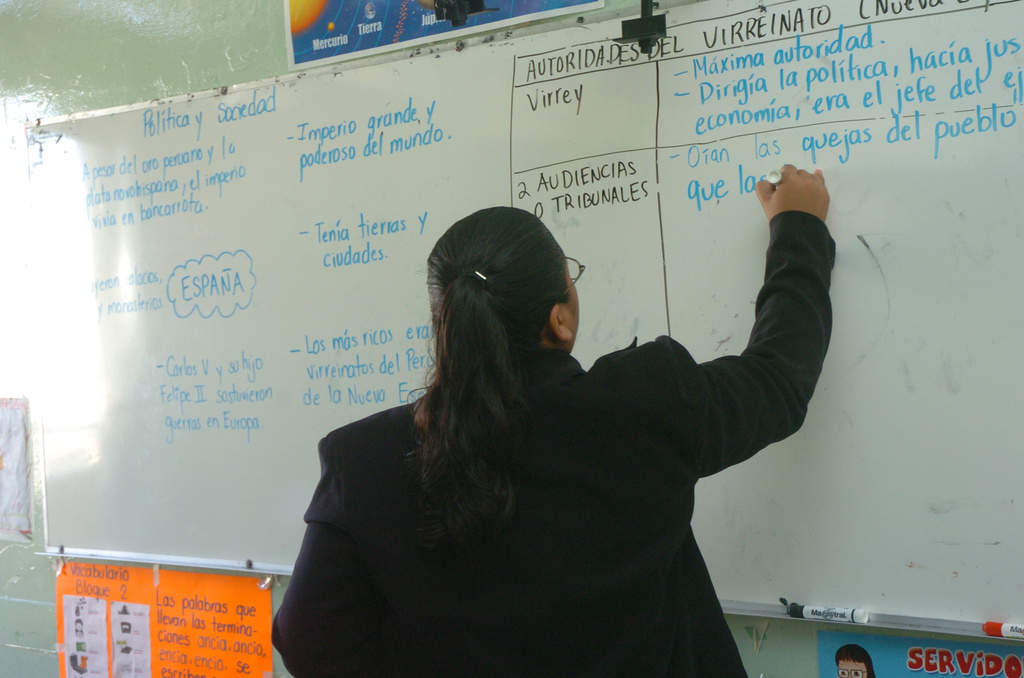 Mercurio
Tierra
AUTORIDADES DEL VIRREINATO
Virrey
- Máxima autoridad.
- Dirigía la política, hacía jus
economía, era el jefe del ej
2 AUDIENCIAS
O TRIBUNALES
- Oían las quejas del pueblo
que la
Política y Sociedad
Apesar del oro peruano y la
plata novohispana, el imperio
vivía en bancarrota.
- Imperio grande, y
poderoso del mundo.
- Tenía tierras y
ciudades.
ESPAÑA
y monasterios
- Carlos V y su hijo
Felipe II sostuvieron
guerras en Europa.
- Los más ricos era
virreinatos del Per
de la Nueva Es
Vocabulario
Bloque 2
Las palabras que
llevan las termina-
ciones ancia, ancio,
encia, encio, se
escriben
Magistral
Ma
SERVIDO